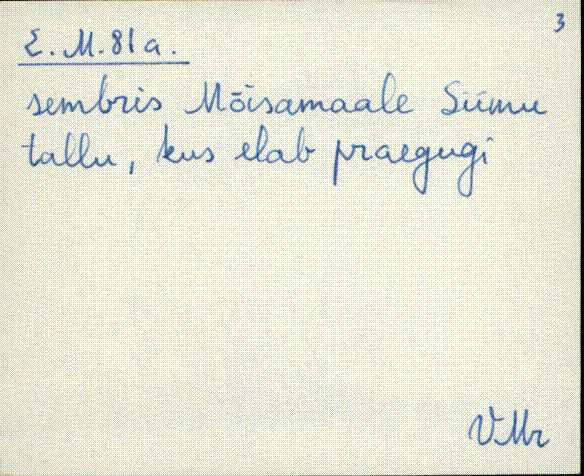 3
E. M. 81 a.
sembris Mõisamaale Siimu
tallu, kus elab praegugi
VMr